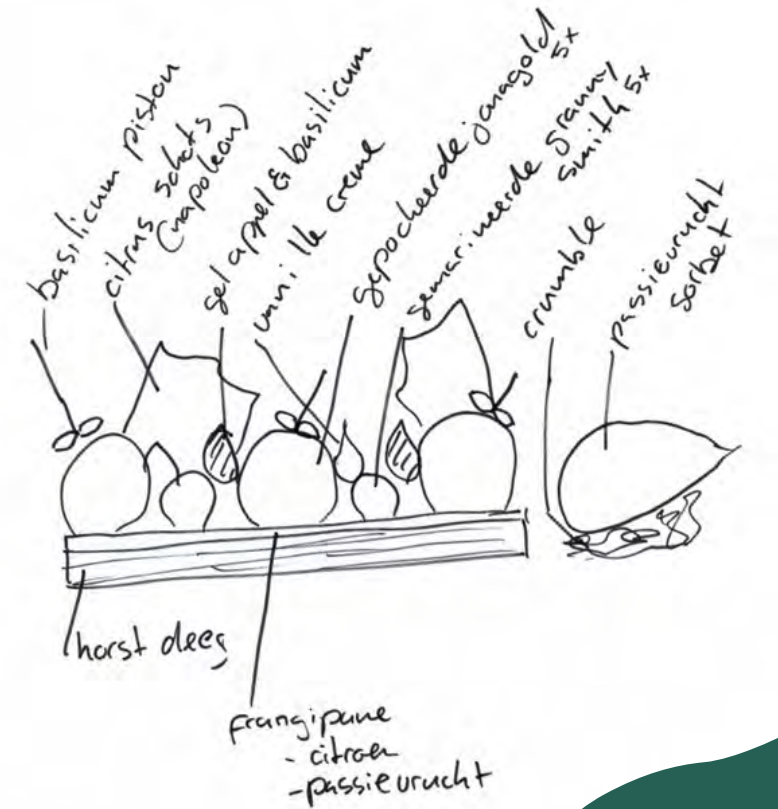 basilicum piston
citrus schots
(napoleon)
gel appel & basilicum
vanille creme
gepocheerde jonagold
5x
gemarineerde granny
smith 5x
crumble
passievrucht
sorbet
korst deeg
frangipane
- citroen
- passievrucht